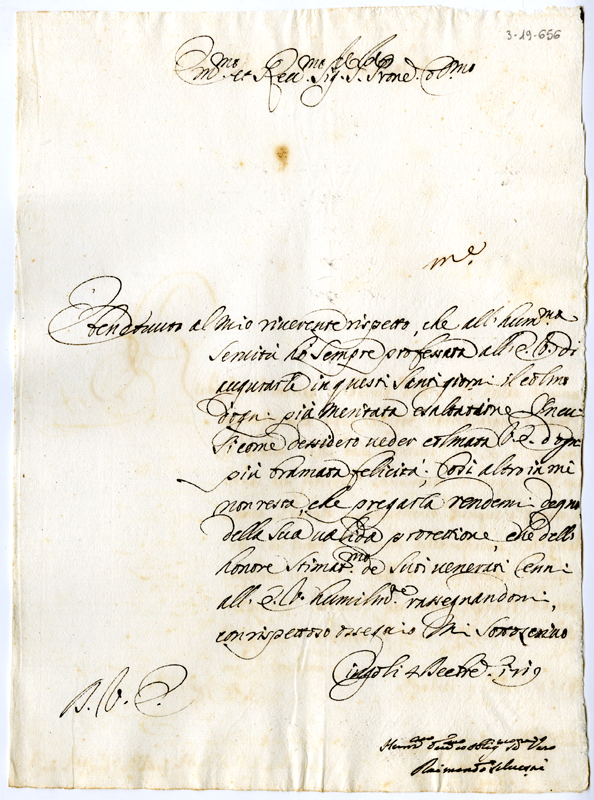 3-19-656
Em.mo et Reu.mo Sig.r Sig.r Pron.e Col.mo
È ben douuto al Mio riuerente rispetto, che all' hum.ma
seruitù hò sempre professata all' E. V. di
augurarle in questi Santi giorni il colmo
d'ogni più meritata esaltatione
Sicome desidero ueder colmata V. E. d'ogni
più bramata felicità; Così altro à me
non resta, che pregarla rendermi degno
della Sua ualida protettione, che dell'
honore stimat.mo de Suoi uenerati Cenni
all' E. V. humilm.e rassegnandomi,
con rispettoso ossequio Mi sottoscriuo
Cingoli 4 Decbre 1719
D. V. E.
Raimondo